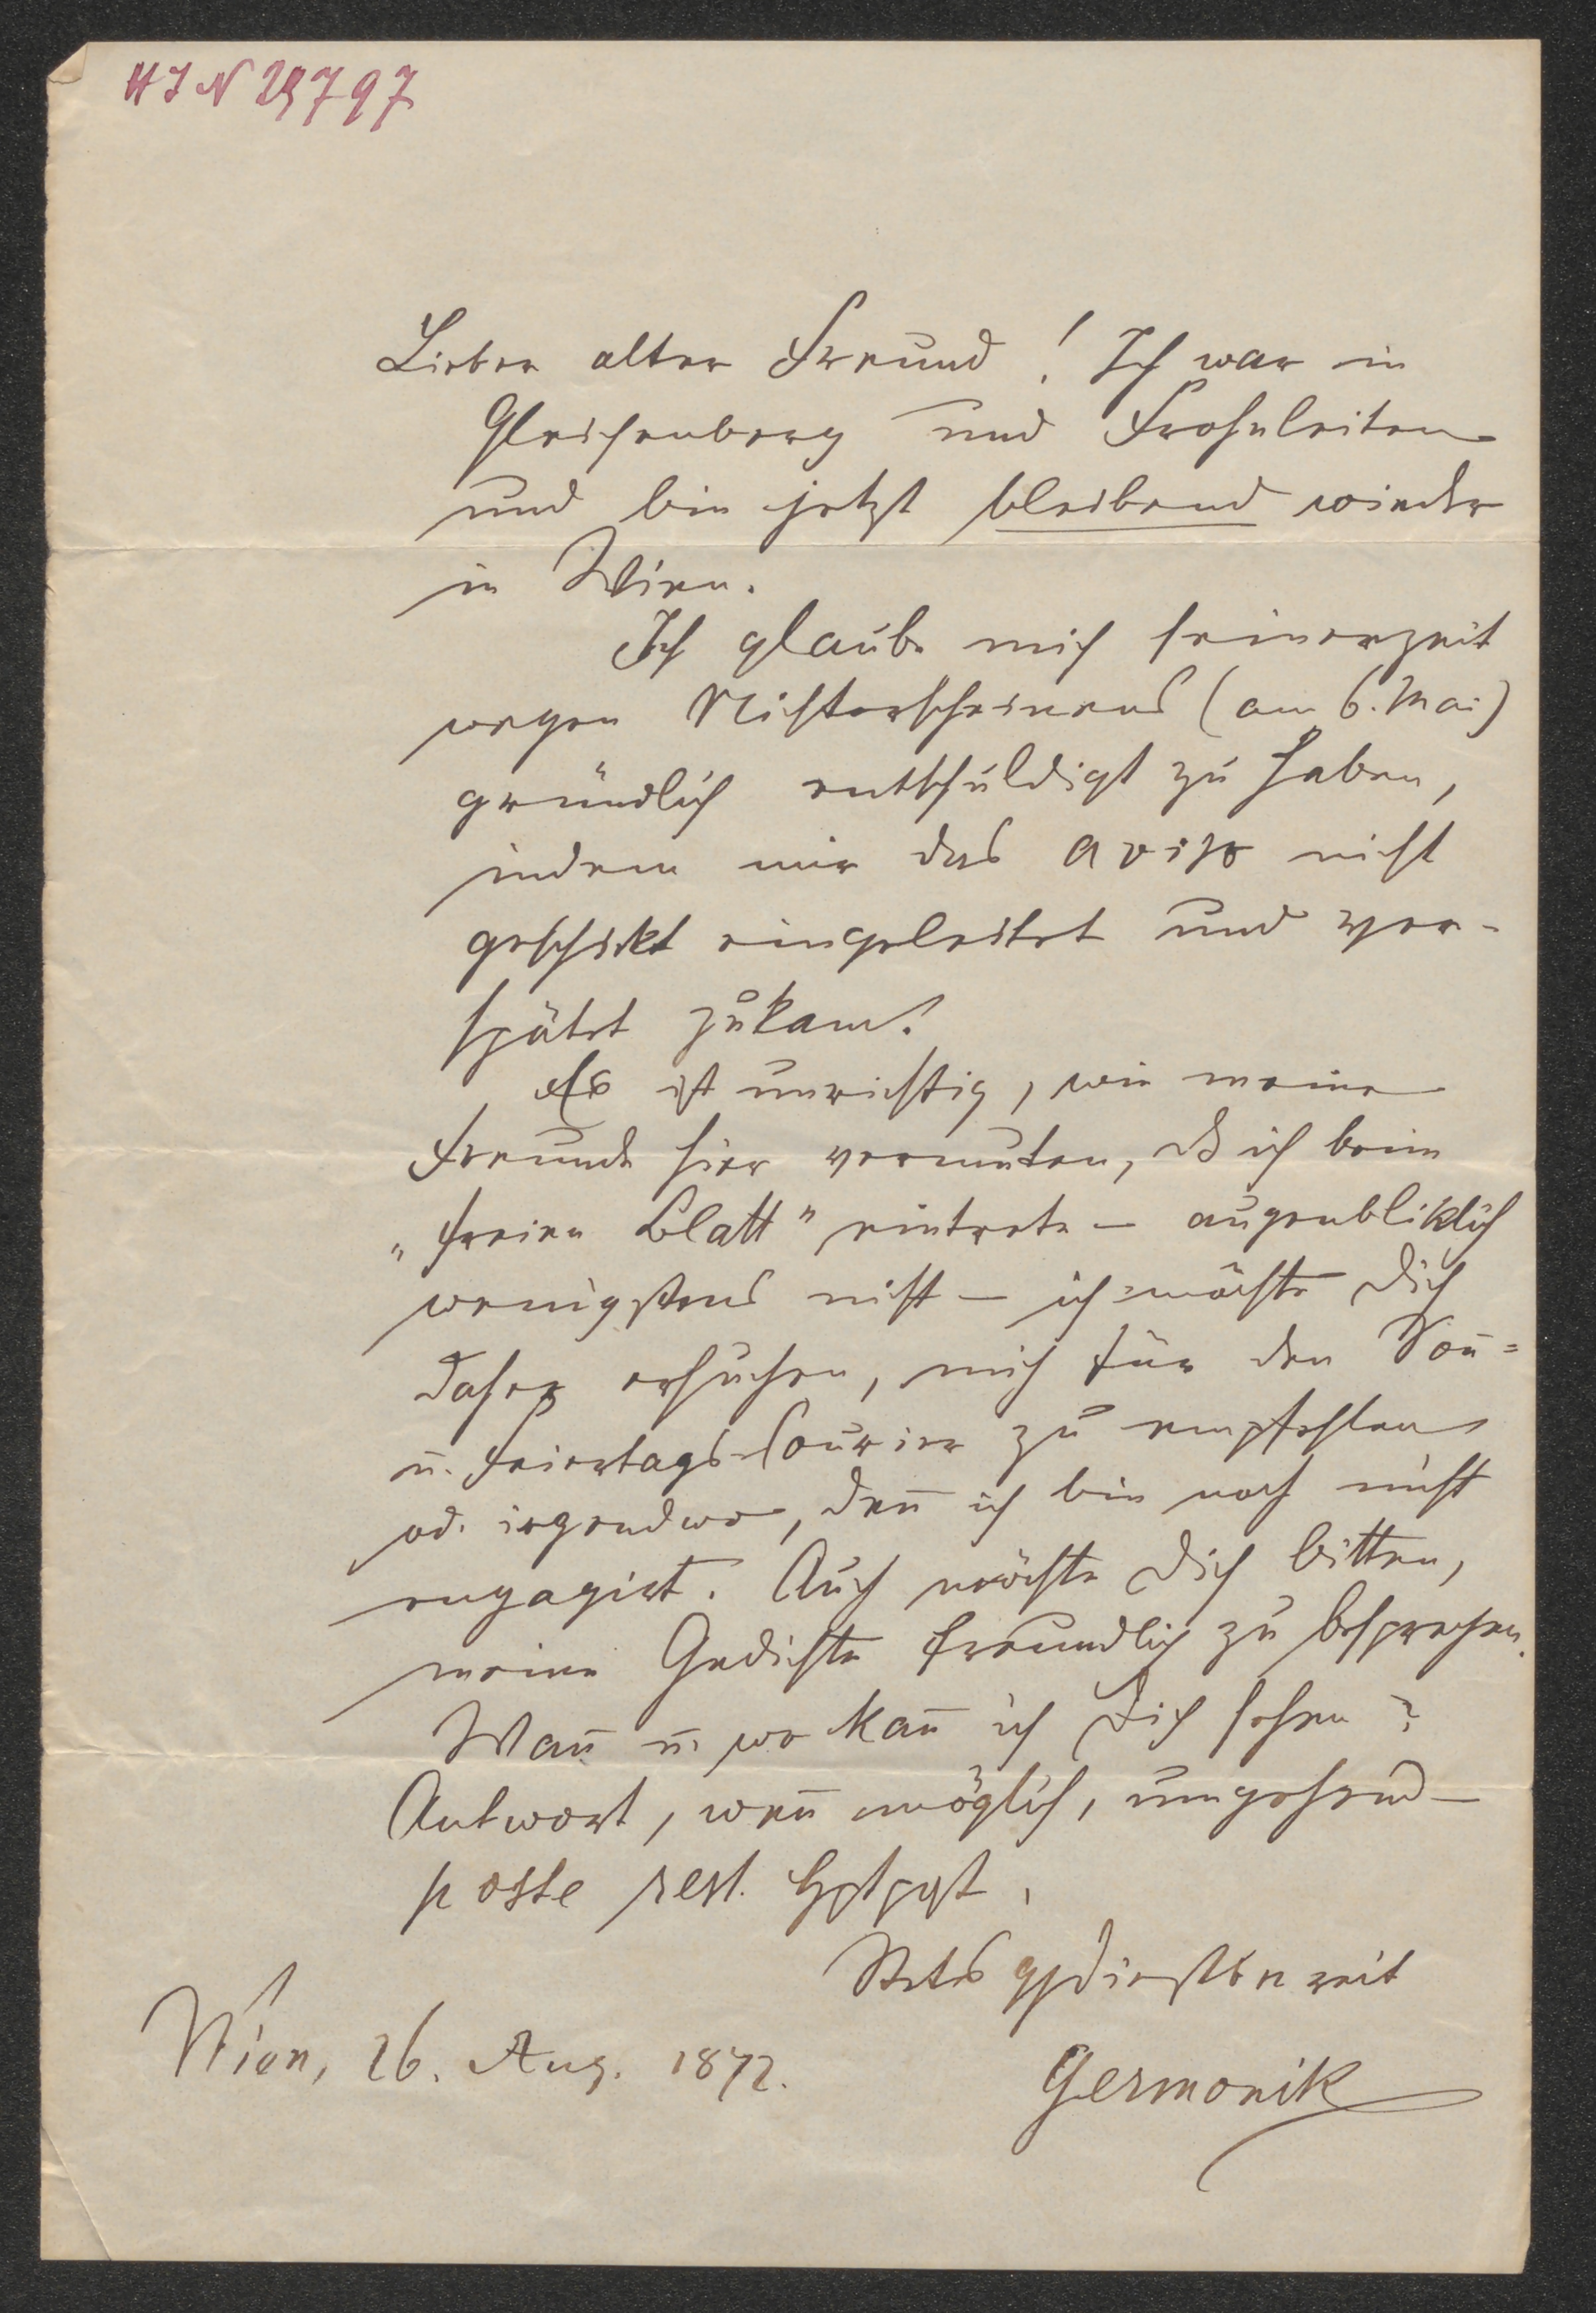 HIN 29797
Lieber alter Freund! Ich war in
Gleichenberg und Frohnleiten
und bin jetzt bleibend wieder
in Wien.
Ich glaube mich seinerzeit
wegen Nichterscheinens (am 6. Mai)
gründlich entschuldigt zu haben,
indem mir das aviso nicht
geschikt eingeleitet und ver-
spätet zukam!
Es ist unrichtig, wie meine
Freunde hier vermuten, dß ich beim
„freien Blatt" eintrete – augenbliklich
wenigstens nicht – ich möchte Dich
daher ersuchen, mich für den Son̄=
u. Feiertags-Courier zu empfehlen
od. irgendwo, den̄ ich bin noch nicht
engagirt. Auch möchte Dich bitten,
meine Gedichte freundlich zu besprechen.
Wan̄ u. wo kan̄ ich Dich sehen?
Antwort, wen̄ möglich, umgehend –
poste rest. Hptpst.
Stets
Germonik
Wien, 26. Aug. 1872.